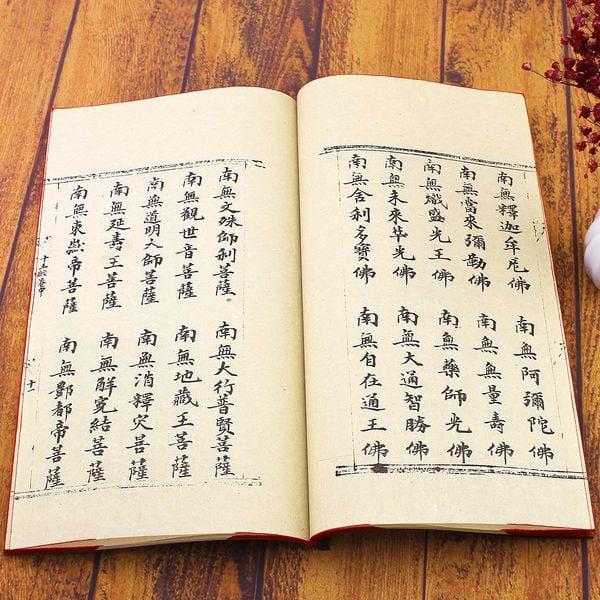 南無釋迦牟尼佛
南無阿彌陀佛
南無當來彌勒佛
南無無量壽佛
南無熾盛光王佛
南無藥師光佛
南無未來華光佛
南無大通智勝佛
南無舍利多寶佛
南無自在通王佛
南無文殊師利菩薩
南無大行普賢菩薩
南無觀世音菩薩
南無地藏王菩薩
南無道明大師菩薩
南無消釋災菩薩
南無延壽王菩薩
南無解冤結菩薩
南無東嶽帝菩薩
南無酆都帝菩薩
十一